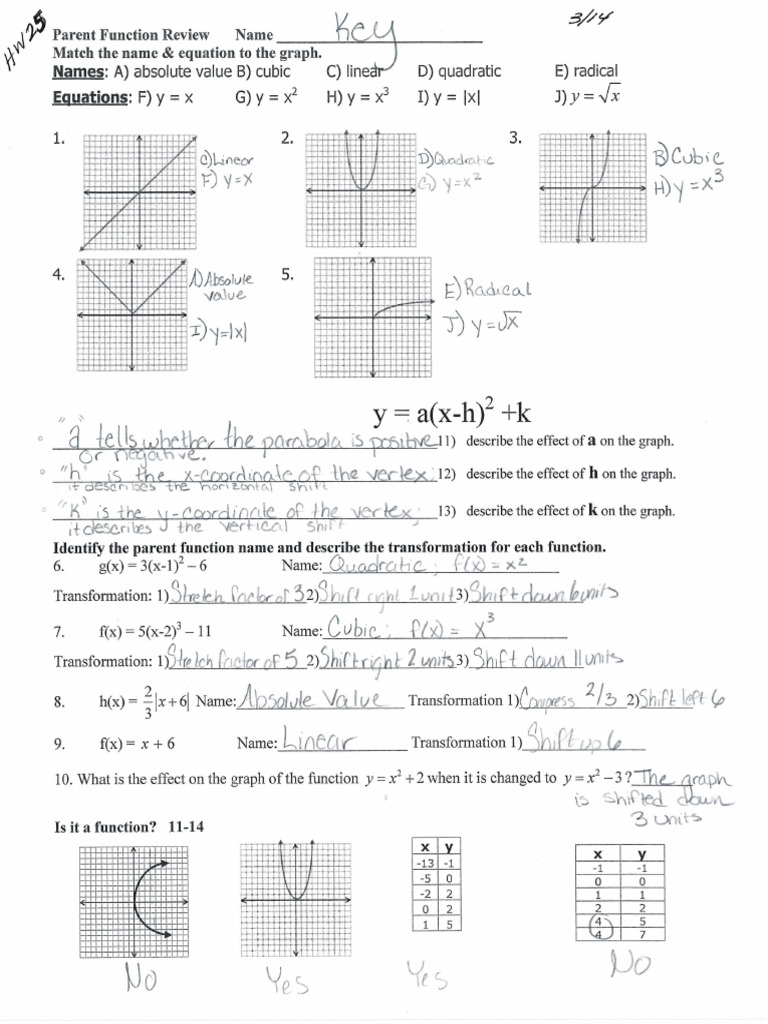 HW25
3/14
Parent Function Review Name Key
Match the name & equation to the graph.
Names: A) absolute value B) cubic C) linear D) quadratic E) radical
Equations: F) y = x G) y = x² H) y = x³ I) y = |x| J) y = √x
1.
C) Linear
F) y = x
2.
D) Quadratic
G) y = x²
3.
B) Cubic
H) y = x³
4.
A) Absolute
value
I) y = |x|
5.
E) Radical
J) y = √x
y = a(x-h)² +k
"a" tells whether the parabola is positive 11) describe the effect of a on the graph.
or negative.
"h" is the x-coordinate of the vertex; 12) describe the effect of h on the graph.
it describes the horizontal shift
"k" is the y-coordinate of the vertex; 13) describe the effect of k on the graph.
it describes the vertical shift
Identify the parent function name and describe the transformation for each function.
6. g(x) = 3(x-1)² – 6 Name: Quadratic ; f(x) = x²
Transformation: 1) Stretch factor of 3 2) Shift right 1 unit 3) Shift down 6 units
7. f(x) = 5(x-2)³ – 11 Name: Cubic ; f(x) = x³
Transformation: 1) Stretch factor of 5 2) Shift right 2 units 3) Shift down 11 units
8. h(x) = 2/3 |x + 6| Name: Absolute Value Transformation 1) Compress 2/3 2) Shift left 6
9. f(x) = x + 6 Name: Linear Transformation 1) Shift up 6
10. What is the effect on the graph of the function y = x² + 2 when it is changed to y = x² – 3? The graph
is shifted down
3 units
Is it a function? 11-14
No
Yes
x y
-13 -1
-5 0
-2 2
0 2
1 5
Yes
x y
-1 -1
0 0
1 1
2 2
4 5
4 7
No